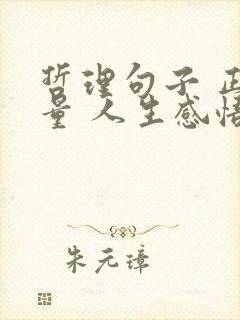 哲理句子 正
量 人生感悟
朱元璋